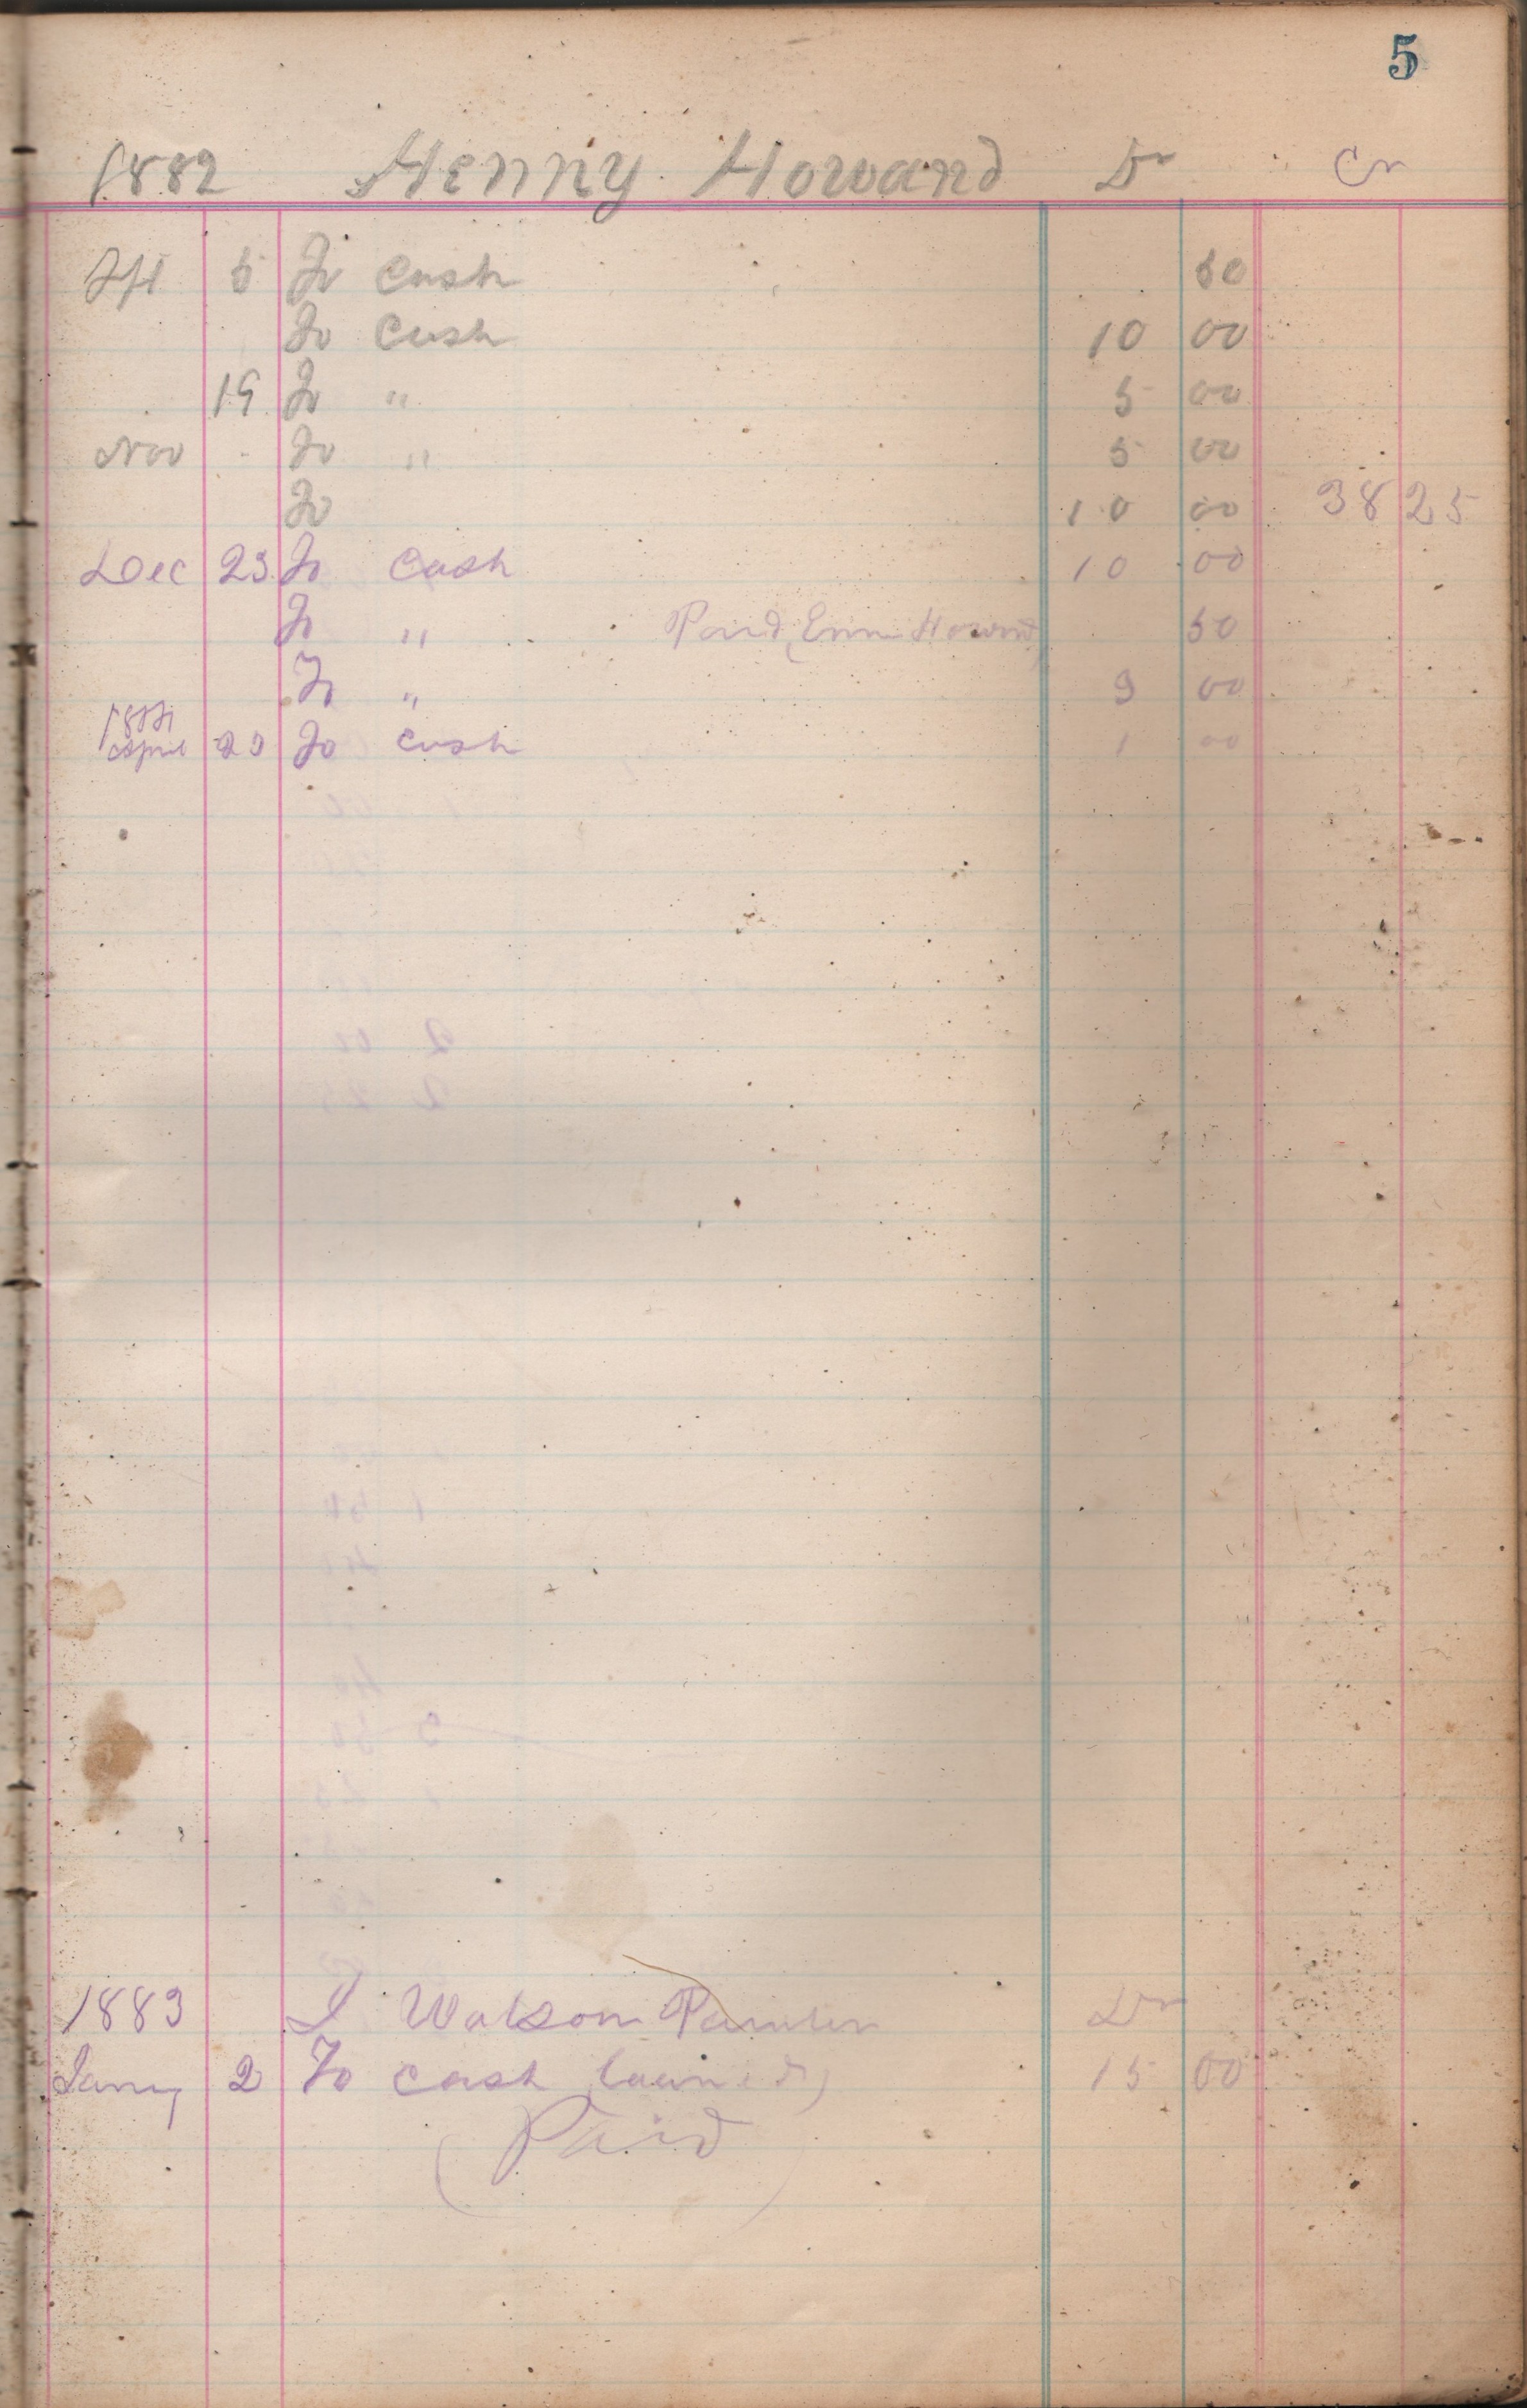 5
1882 Henry Howard Dr Cr
5 To Cash 50
To Cash 10 00
19 To " 5 00
Nov To " 5 00
To 10 00 38 25
Dec 23 To Cash 10 00
To " Paid Howard 50
To " 3 00
April To Cash 1 00
1883 Watson Dr
Jany 2 To Cash loaned 15 00
(Paid)